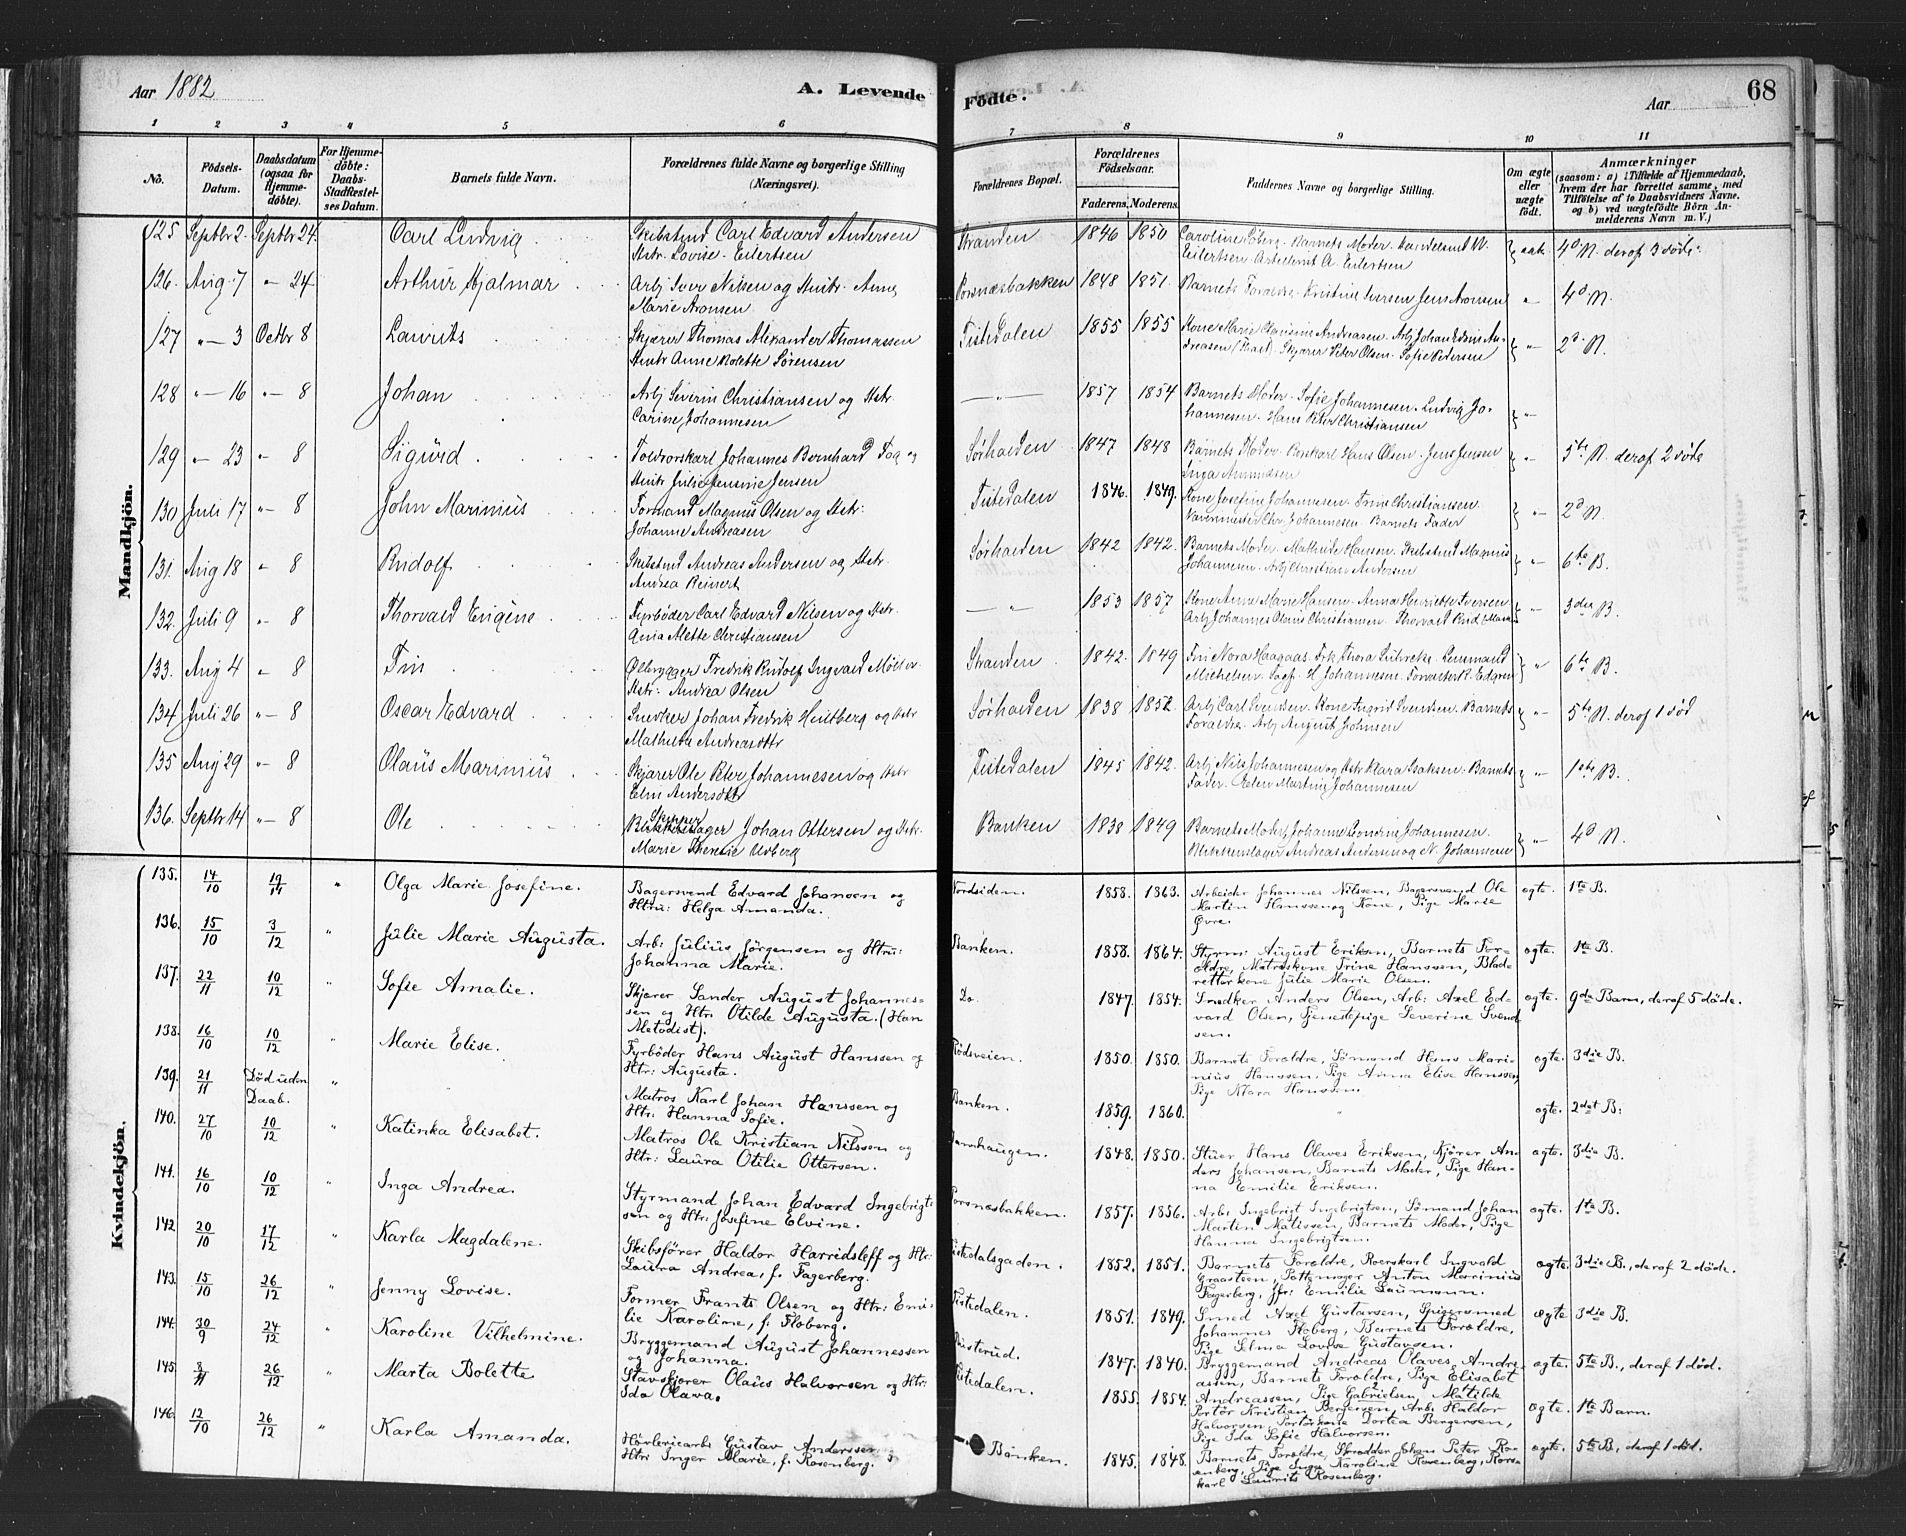 Aar 1882
A. Levende
Födte.
Aar
68
1 2 3 4 5 6 7 8 9 10 11
No.
Födsels-Datum.
Daabsdatum (ogsaa for Hjemme-döbte).
For Hjemme-döbte: Daabs-Stadfæstel-ses Datum.
Barnets fulde Navn.
Forældrenes fulde Navne og borgerlige Stilling (Næringsvei).
Forældrenes Bopæl.
Forældrenes Födselsaar.
Faderens. Moderens.
Faddernes Navne og borgerlige Stilling.
Om ægte eller uægte födt.
Anmærkninger
(saasom: a) i Tilfælde af Hjemmedaab, hvem der har forrettet samme, med Tilföielse af to Daabsvidners Navne, og b) ved uægtefödte Börn An-melderens Navn m. V.)
Mandkjön.
125 Septbr 2. Septbr 24. Carl Ludvig Skibstmd Carl Edvard Andersen
Hstr. Lovise Eilertsen Stranden 1846 1850 Barnets Moder
Eilertsen A. Eilertsen 4d N. deraf 3 døde
126. Aug 7 " 24 Arthur Hjalmar Arb Iver Nilsen og Hustr. Anne
Marie Aronsen Porsnæsbakken 1848 1851. Barnets Forældre Kristine Iversen Jens Aronsen " 4d N.
127 " 3 Octbr 8 Laurits Skjærer Thomas Alexander Thomassen
Hustr Anne Bolette Sørensen Tistedalen 1855 1855 Kone Marie Andreasen Arb Johan Edvin An-
dreasen Skjærer Peter Olsen Sofie Pedersen " 2d N.
128 " 16 " 8 Johan Arb Severin Christiansen og Hstr
Carine Johannesen " 1857 1854 Barnets Moder Sofie Johannesen Ludvig Jo-
hannesen Hans Peter Christiansen "
129 " 23 " 8 Sigurd Johannes Bernhard Foq og
Hustr Julie Jensine Jensen Sørhalden 1847 1848 Barnets Moder Hans Olsen Jens Jensen
Inga " 5te N. deraf 2 døde
130 Juli 17 " 8 John Marinius Formand Magnus Olsen og Hstr:
Johanne Andreasen Tistedalen 1846. 1849. Kone Josefine Johannesen Trine Christiansen
Chr. Johannesen Barnets Fader " 2d N.
131. Aug 18 " 8 Rudolf Skibstmd Andreas Andersen og Hstr.
Andrea Reinert Sørhalden 1842 1842. Barnets Moder Mathilde Hansen Skibstmd Magnus
Johannesen Arb Christian Andersen " 6te B.
132. Juli 9 " 8 Thorvald Eugene Fyrbøder Carl Edvard Nilsen og Hstr.
Ania Mette Christiansen " 1853 1857 Kone Anne Marie Hansen Anna Henriette Iversen
Arb Johannes Olaus Christiansen Thorvald " 3die B.
133. Aug 4 " 8 Fin Ølbrygger Fredrik Rudolf Ingvald Møller
Hstr: Andrea Olsen Stranden 1842. 1849 Nora Haagaas Frk. Thora
Michelsen H Johannesen Forvalter " 6te B.
134 Juli 26 " 8 Oscar Edvard Snedker Johan Fredrik Hultberg og Hstr
Mathilde Andreasdttr Sørhalden 1838 1852 Arb Carl Svendsen Kone Ingrid Svendsen Barnets
Forældre Arb August Johnsen " 5te N. deraf 1 død
135 Aug 29 " 8 Olaus Marinius Skjærer Ole Peter Johannesen og Hstr
Elen Andersdttr Tistedalen 1845 1842. Arb Nils Johannesen og Hstr Klara Isaksen Barnets
Fader Elen Martine Johannesen " 1ste B.
136. Septbr 14 " 8 Ole Skipper
Blikkenslager Johan Ottersen og Hstr.
Marie Therese Udberg Banken 1838 1849 Barnets Moder Johanne Johannesen
Blikkenslager Andreas Andersen og N. Johannesen " 4d N.
Kvindekjön.
135. 14/10 19/11 " Olga Marie Josefine. Bagersvend Edvard Johansen og
Htru: Helga Amanda. Nordsiden. 1858. 1863. Arbeider Johannes Nilssen, Bagersvend Ole
Martin Hanssen og Kone, Pige Marie
Øvre. ægte. 1ste B.
136. 15/10 3/12 " Julie Marie Augusta. Arb: Julius Jørgensen og Htru:
Johanna Marie. Banken. 1858. 1864. Styrm: August Eriksen, Barnets For-
ældre, Matroskone Trine Hanssen, Blad-
retterkone Julie Marie Olsen. ægte. 1ste B.
137. 22/11 10/12 " Sofie Amalie. Skjærer Sander August Johannes-
sen og Htr: Otilde Augusta. (Han
Metodist). Do. 1847. 1854. Snedker Anders Olsen, Arb: Axel Ed-
vard Olsen, Tjenestepige Severine Svend
sen. ægte. 9de Barn, deraf 5 døde.
138. 16/10 10/12 " Marie Elise. Fyrbøder Hans August Hanssen og
Htr: Augusta. Rødsveien. 1850. 1850. Barnets Forældre, Sømand Hans Mari-
nius Hanssen, Pige Anna Elise Hanssen,
Pige Klara Hanssen. ægte. 3die B.
139. 21/11 Død uden
Daab. " Matros Karl Johan Hanssen og
Htr: Hanna Sofie. Banken. 1859. 1860. ægte. 2det B:
140. 27/10 10/12 " Katinka Elisabet. Matros Ole Kristian Nilssen og
Htr: Laura Otilie Ottersen. 1848. 1850. Stuer Hans Olaves Eriksen, Kjører An-
ders Johansen, Barnets Moder, Pige Han-
na Emilie Eriksen. ægte. 3die B.
141. 16/10 10/12 " Inga Andrea. Styrmand Johan Edvard Ingebrigt
sen og Htr: Josefine Elvine. Porsnæsbakken. 1857. 1856. Arb: Ingebrigt Ingebrigtsen, Sømand Johan
Martin Matissen, Barnets Moder, Pige
Hanna Ingebrigtsen. ægte. 1ste B.
142 20/10 17/12 " Karla Magdalene. Skibsfører Haldor Harridsleff og Htr:
Laura Andrea, f. Fagerberg. Tistedalsgaden. 1852. 1851. Barnets Forældre, Roerskarl Ingvald
Graasteen, Pottemager Anton Marinius
Fagerberg, Jfr: Emilie Laumann. ægte. 3die B., deraf 2 døde.
143. 15/10 26/12 " Jenny Lovise. Former Frants Olsen og Htr: Emi-
lie Karoline, f. Floberg. Tistedalen. 1851. 1849. Smed Axel Gustavsen, Spigersmed
Johannes Floberg, Barnets Forældre,
Pige Selma Lovise Gustavsen. ægte 3die B.
144. 30/9 24/12 " Karoline Vilhelmine. Bryggemand August Johannessen
og Johanna. 1847. 1840. Bryggemand Andreas Olaves Andre-
assen, Barnets Forældre, Pige Elisabet
Andreassen, Pige Gabrielsen, Matilde ægte. 5te B., deraf 1 død.
145. 8/11 26/12 " Marta Bolette Stavskjører Olaus Halvorsen og Htr:
Ida Olava. Tistedalen. 1855. 1854. Portør Kristian Bergersen, Arb: Haldor
Halvorsen, Portørkone Dortea Bergersen,
Pige Ida Sofie Halvorsen. ægte. 1ste Barn.
146. 12/10 26/12 " Karla Amanda. Høvleriearb: Gustav Anderssen
Htr: Inger Marie, f. Rosenberg. Banken. 1845. 1848. Barnets Forældre, Skrædder Johan Peter Ro-
senberg, Pige Inga Karoline Rosenberg, Roers-
karl Laurits Rosenberg. ægte. 5te B., deraf 1 død.